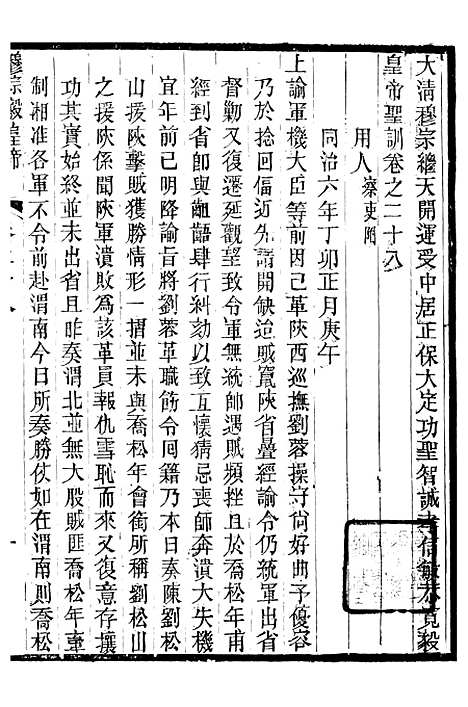 大清穆宗繼天開運受中居正保大定功聖智誠孝信敏恭寬毅
皇帝聖訓卷之二十八
用人察吏附
同治六年丁卯正月庚午
上諭軍機大臣等前因已革陝西巡撫劉蓉操守尚好曲予優容
乃於捻回偪近先請開缺迨賊竄陝省疊經諭令仍統軍出省
督勦又復遷延觀望致令軍無統帥賊頻挫且於喬松年甫
經到省即與齟齬肆行糾劾以致互懷猜忌喪師奔潰大失機
宜年前已明降諭旨將劉蓉革職飭令回籍乃本日奏陳劉松
山援陝擊賊獲勝情形一摺並未與喬松年會銜所稱劉松山
之援陝係聞陝軍潰敗為該革員報仇雪恥而來又復意存攘
功其實始終並未出省且昨奏渭北並無大股賊匪喬松年牽
制湘淮各軍不令前赴渭南今日所奏勝仗如在渭南則喬松
穆宗毅皇帝